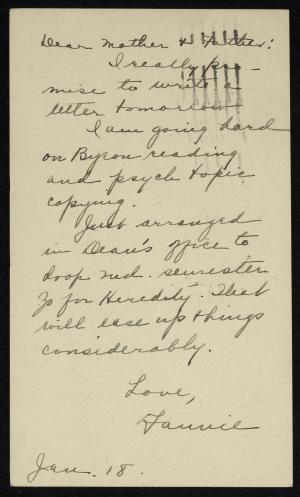 Dear Mother & Father:
I really pro-
mise to write a
letter tomorrow
I am going hard
on Byron reading
and psych topic
copying.
Just arranged
in Dean's office to
drop 2nd. semester
Zo for Heredity. That
will ease up things
considerably.
Love,
Fannie
Jan. 18.